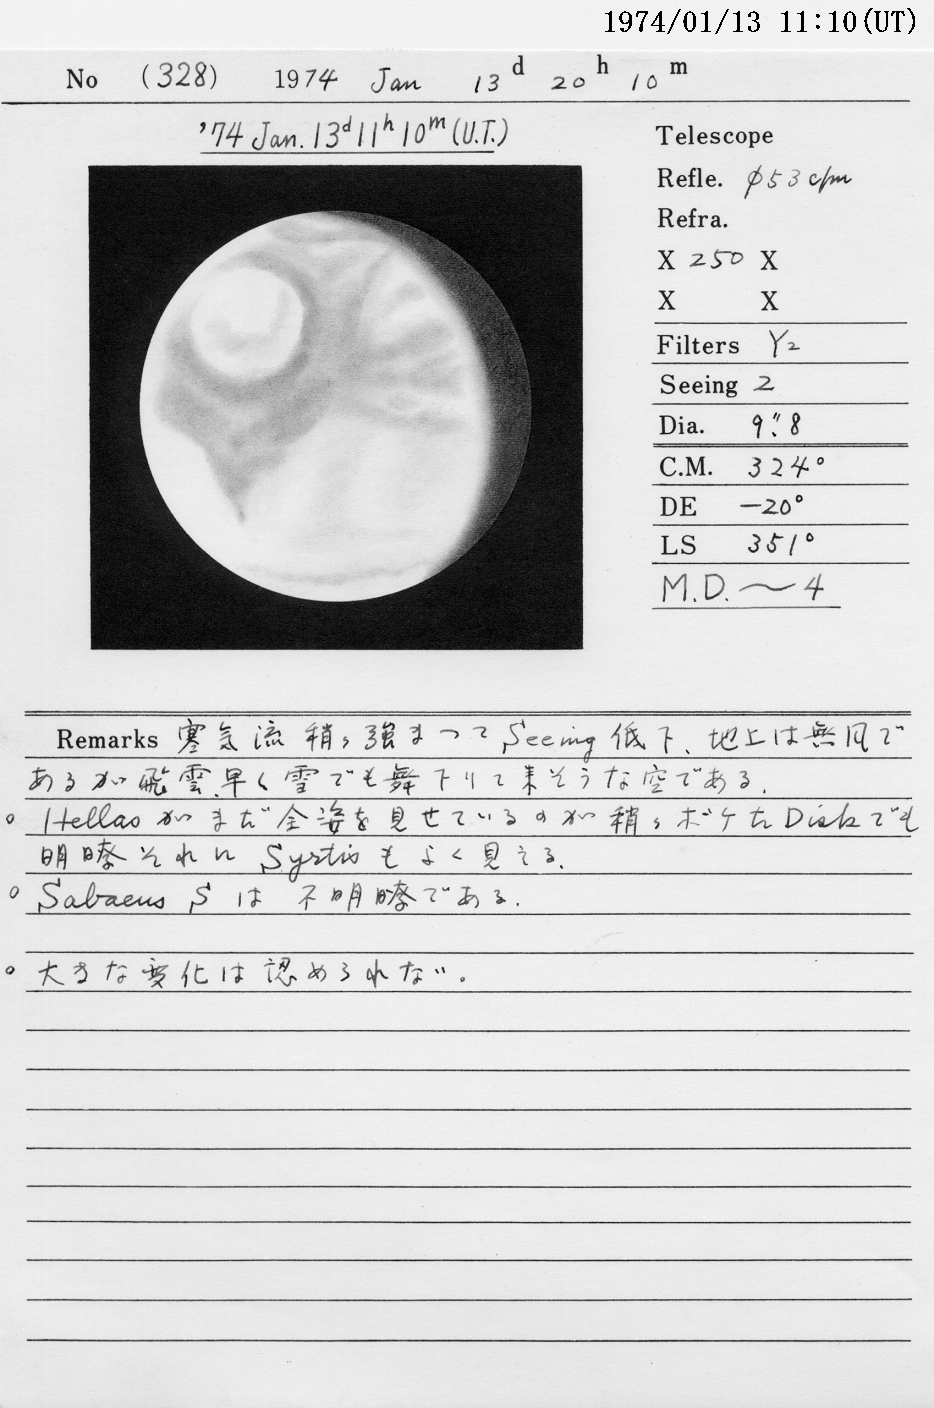 1974/01/13 11:10(UT)
No (328) 1974 Jan 13d 20h 10m
'74 Jan. 13d 11h 10m (U.T.)
Telescope
Refle. φ53 c/m
Refra.
X 250 X
X X
Filters Y2
Seeing 2
Dia. 9".8
C.M. 324°
DE −20°
LS 351°
M.D. ～4
Remarks 寒気流稍々強まって Seeing 低下、地上は無風で
あるが飛雲早く雪でも舞下りて来そうな空である。
○ Hellas がまだ全姿を見せているのが稍々ボケたDiskでも
明瞭それに Syrtis もよく見える。
○ Sabaeus S は不明瞭である。
○ 大きな変化は認められない。